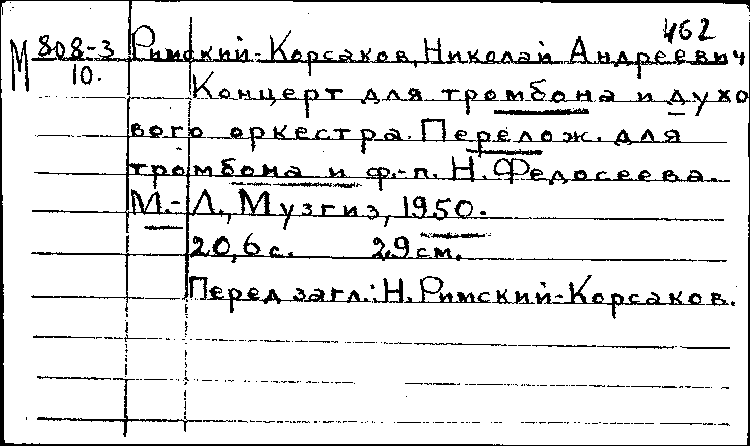 462
М 808-3 Римский-Корсаков, Николай Андреевич
10.
Концерт для тромбона и духо
вого оркестра. Перелож. для
тромбона и ф.-п. Н. Федосеева.
М.-Л., Музгиз, 1950.
20,6 с. 29 см.
Перед загл.: Н. Римский-Корсаков.